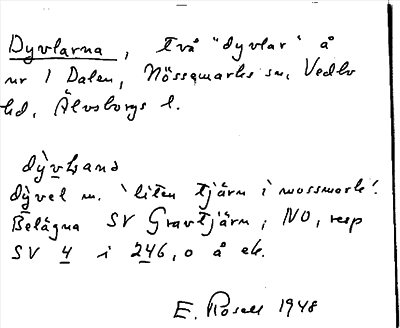 Dyvlarna, två "dyvlar" å
nr 1 Dalen, Nössemarks sn, Vedbo
hd, Älvsborgs l.
dỳvḷana
dỳvel m. 'liten tjärn i mossmark'.
Belägna SV Gravtjärn, NO, resp
SV 4 i 246, 0 å ek.
E. Rosell 1948